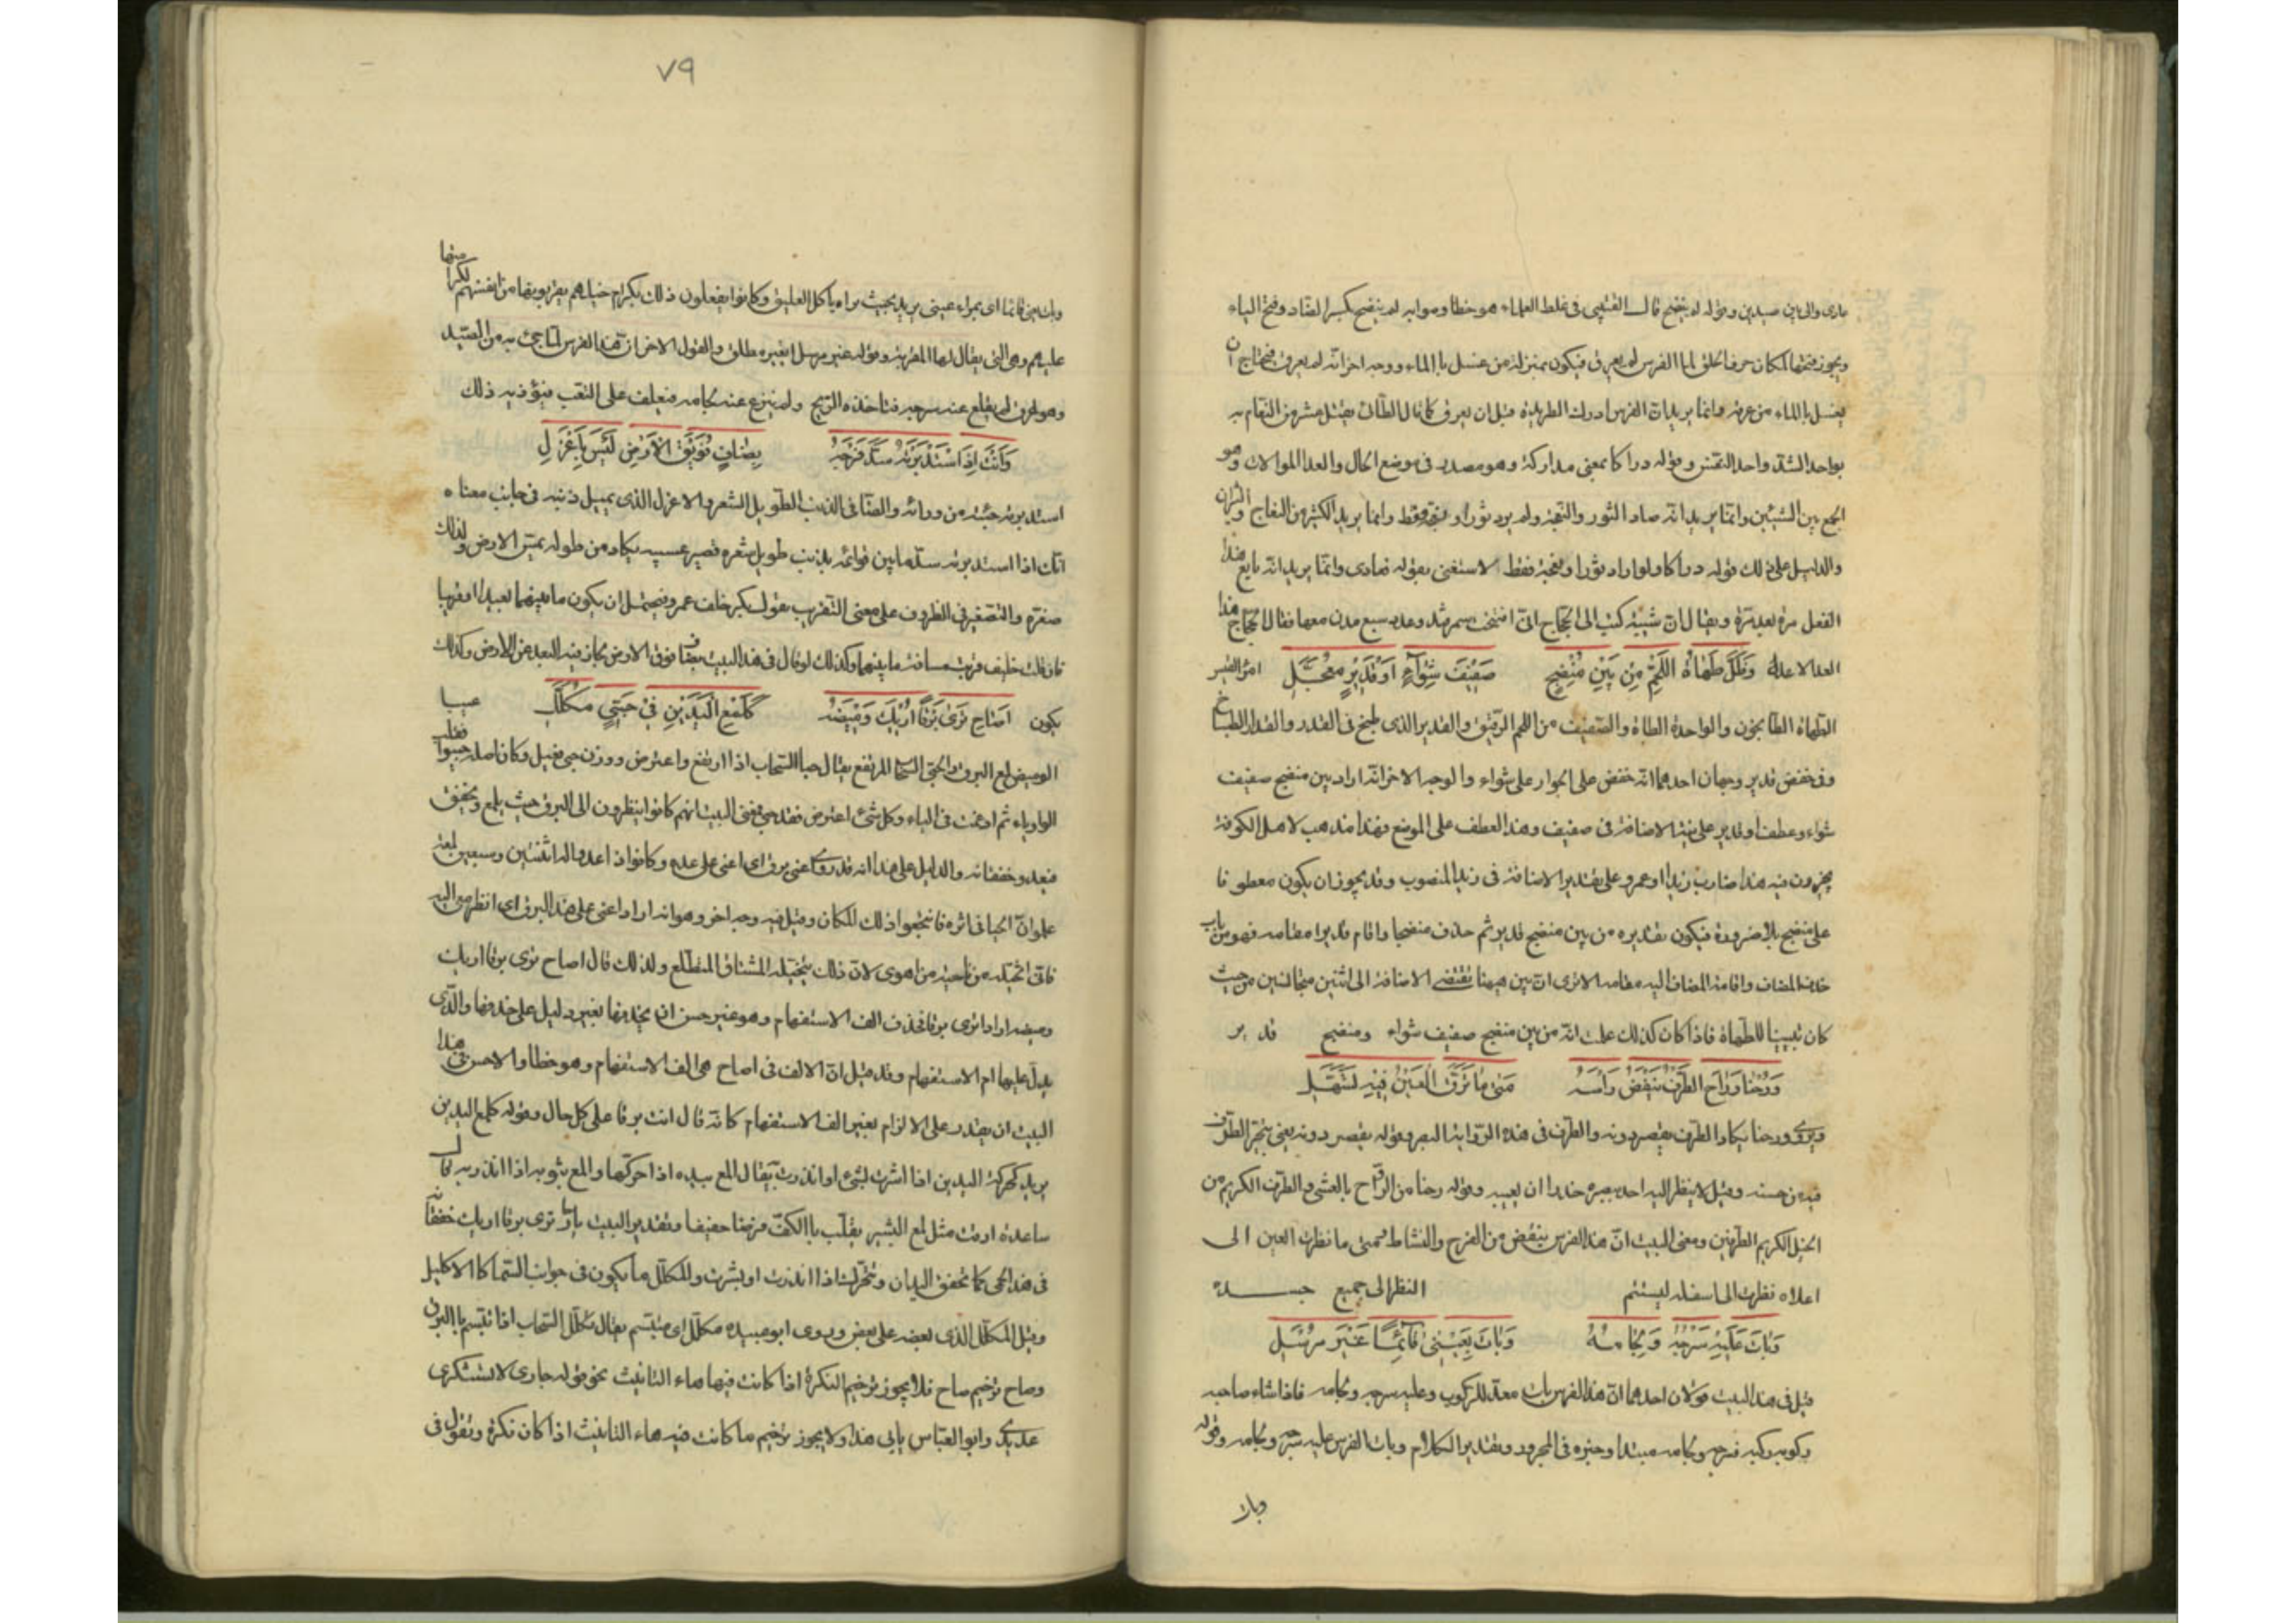 مارى والى بين صيدين وقوله لم ينضح قال القتيبى فى غلط العلماء هو خطا وصوابه لم ينضح بكسر الضاد وفتح الياء
ويجوز فتحها لمكان حرف الحلق لما الفرس لم يعرق فيكون بمنزلة من غسل بالماء ووجه اخر انه لم يعرق فيحتاج ان
يغسل بالماء من عرقه وانما يريد ان الفرس ادرك الطريدة قبل ان يعرق كما قال الطائى بقتل عشر من النعام به
بواحد الشد واحد النفس وقوله دراكا بمعنى مداركة وهو مصدر فى موضع الحال والعدا الموالات وهو
الجمع بين الشيئين وانما يريد انه صاد الثور والنعجة ولم يرد ثورا ونعجة فقط وانما يريد الكثير من النعاج والثيران
والدليل على ذلك قوله دراكا ولو اراد ثورا ونعجة فقط لاستغنى بقوله فعادى وانما يريد انه تابع هذا
الفعل مرة بعد مرة ويقال ان شبيبة كتب الى الحجاج انى افتتحت سمرقند وعدد سبع مدن معها فقال الحجاج هذا
العدا لا عداء وَظَلَّ طُهَاةُ اللَّحْمِ مِنْ بَيْنِ مُنْضِجٍ صَفِيفَ شِوَاءٍ اَوْ قَدِيرٍ مُعَجَّلِ
الطهاة الطباخون والواحدة الطاه والصفيف من اللحم الرقيق والقدير الذى طبخ فى القدر والقدار الطباخ
وفى خفض قدير وجهان احدهما انه خفض على الجوار على شواء والوجه الاخر انه اراد بين منضج صفيف
شواء وعطف او قدير على نية الاضافة فى صفيف وهذا العطف على الموضع وهذا مذهب لاهل الكوفة
يجيزون فيه هذا ضارب زيدا او عمرو على تقدير الاضافة فى زيد المنصوب وقد يجوز ان يكون معطوفا
على منضج بلا ضرورة فيكون تقديره من بين منضج قدير ثم حذف منضجا واقام قديرا مقامه فهو من باب
حذف المضاف واقامة المضاف اليه مقامه الا ترى ان بين ههنا تقتضى الاضافة الى اثنين متجانسين من حيث
كان تبيينا للطهاة فاذا كان كذلك علمت انه من بين منضج صفيف شواء ومنضج قدير
وَرُحْنَا وَرَاحَ الطَّرْفُ يَنْفُضُ رَأْسَهُ مَتَى مَا تَرَقَّ الْعَيْنُ فِيهِ تَسَهَّلِ
ويروى ورحنا يكاد الطرف يقصر دونه والطرف فى هذه الرواية البصر وقوله يقصر دونه يعنى يتحير الطرف
فيه من حسنه وقيل لا ينظر اليه احد بصره حذرا ان يعيبه وقوله رحنا من الرواح بالعشى والطرف الكريم من
الخيل الكريم الطرفين ومعنى البيت ان هذا الفرس ينفض من الفرح والنشاط فمتى ما نظرت العين الى
اعلاه نظرت الى اسفله ليستتم النظر الى جميع جسده
وَبَاتَ عَلَيْهِ سَرْجُهُ وَلِجَامُهُ وَبَاتَ بِعَيْنِى قَائِمًا غَيْرَ مُرْسَلِ
قيل فى هذا البيت قولان احدهما ان هذا الفرس بات معدا للركوب وعليه سرجه ولجامه فاذا شاء صاحبه
ركوبه ركبه فسرجه ولجامه مبتدا وخبره فى المجرور وتقدير الكلام وبات الفرس عليه سرجه ولجامه وقوله
وبات
٧٩
وبات بعينى قائما اى بمراء عينى يريد بحيث يراه ياكل العليق وكانوا يفعلون ذلك بكرام خيلهم يقربونها من انفسهم لكرامتها
عليهم وهى التى يقال لها المقربة وقوله غير مرسل اى غير مطلق والقول الاخر ان هذا الفرس لما جئ به من الصيد
وهو عرق لم يقلع عنه سرجه فتاخذه الريح ولم ينزع عنه لجامه فيعلف على التعب فيؤذيه ذلك
وَاَنْتَ اِذَا اسْتَدْبَرْتَهُ سَدَّ فَرْجَهُ بِضَافٍ فُوَيْقَ الْاَرْضِ لَيْسَ بِاَعْزَلِ
استدبرته جئته من ورائه والضافى الذنب الطويل الشعر والاعزل الذى يميل ذنبه فى جانب معناه
انك اذا استدبرته سد ما بين قوائمه بذنب طويل شعره قصير عسيبه يكاد من طوله يمس الارض ولذلك
صغره والتصغير فى الظروف على معنى التقريب بقولك بكر خلف عمرو فيحتمل ان يكون ما بينهما بعيدا او قريبا
فان قلت خليف قربت مسافة ما بينهما وكذلك لو قال فى هذا البيت بضاف فوق الارض لجاز فيه البعد عن الارض وكذلك
يكون اَصَاحِ تَرَى بَرْقًا اُرِيكَ وَمِيضَهُ كَلَمْعِ الْيَدَيْنِ فِى حَبِىٍّ مُكَلَّلِ
الوميض لمع البرق والحبى السحاب المرتفع يقال حبا السحاب اذا ارتفع واعترض ووزن حبى فعيل وكان اصله حبيوا فقلب
الواو ياء ثم ادغمت فى الياء وكل شئ اعترض فقد حبى فمعنى البيت انهم كانوا ينظرون الى البرق حيث يلمع ويخفق
فيعدو خفقانه والدليل على هذا انه قد روى اعنى برق اى اعنى على عده وكانوا اذا عدوا له اثنتين وسبعين لمعة
علموا ان الحيا فى اثره فانتجعوا ذلك المكان وقيل فيه وجه اخر وهو انه اراد اعنى على هذا البرق اى انظر معى اليه
فانى اتخيله من ناحية من اهوى لان ذلك يتخيله المشتاق المتطلع ولذلك قال اصاح ترى برقا اريك
وميضه اراد اترى برقا فحذف الف الاستفهام وهو غير حسن ان يحذفها بغير دليل على حذفها والذى
يدل عليها ام الاستفهام وقد قيل ان الالف فى اصاح هى الف الاستفهام وهو خطا والاحسن فى هذا
البيت ان يقدر على الالزام بغير الف الاستفهام كانه قال انت برقا على كل حال وقوله كلمع اليدين
يريد كحركة اليدين اذا اشرت لشئ او انذرت يقال المع بيده اذا حركها والمع بثوبه اذا انذر به قال
ساعدة ارقت مثل لمع البشير يقلب بالكف فرضا خفيفا وتقدير البيت يا صاح ترى برقا اريك خفقانه
فى هذا الحبى كما تخفق اليدان وتتحرك اذا انذرت او بشرت والمكلل ما يكون فى جوانب السما كالاكليل
وقيل المكلل الذى بعضه على بعض وروى ابو عبيده مكلل اى متبسم يقال تكلل السحاب اذا تبسم بالبرق
وصاح ترخيم صاحب فلا يجوز ترخيم النكرة الا اذا كانت فيها هاء التانيث نحو قوله جارى لا تستنكرى
عذيرى وابو العباس يابى هذا ولا يجوز ترخيم ما كانت فيه هاء التانيث اذا كان نكرة وتقول فى